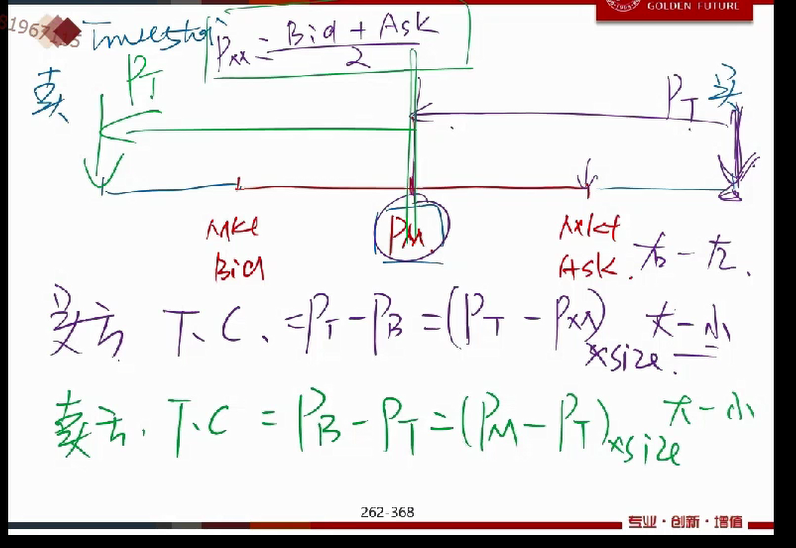 GOLDEN FUTURE
P_M = Bid + Ask / 2
卖 P_T P_T 买
P_M
Mkt Bid
Mkt Ask
右-左
买方 T.C. = P_T - P_B = (P_T - P_M) × size 大-小
卖方. T.C = P_B - P_T = (P_M - P_T) × size 大-小
262-368
专业·创新·增值